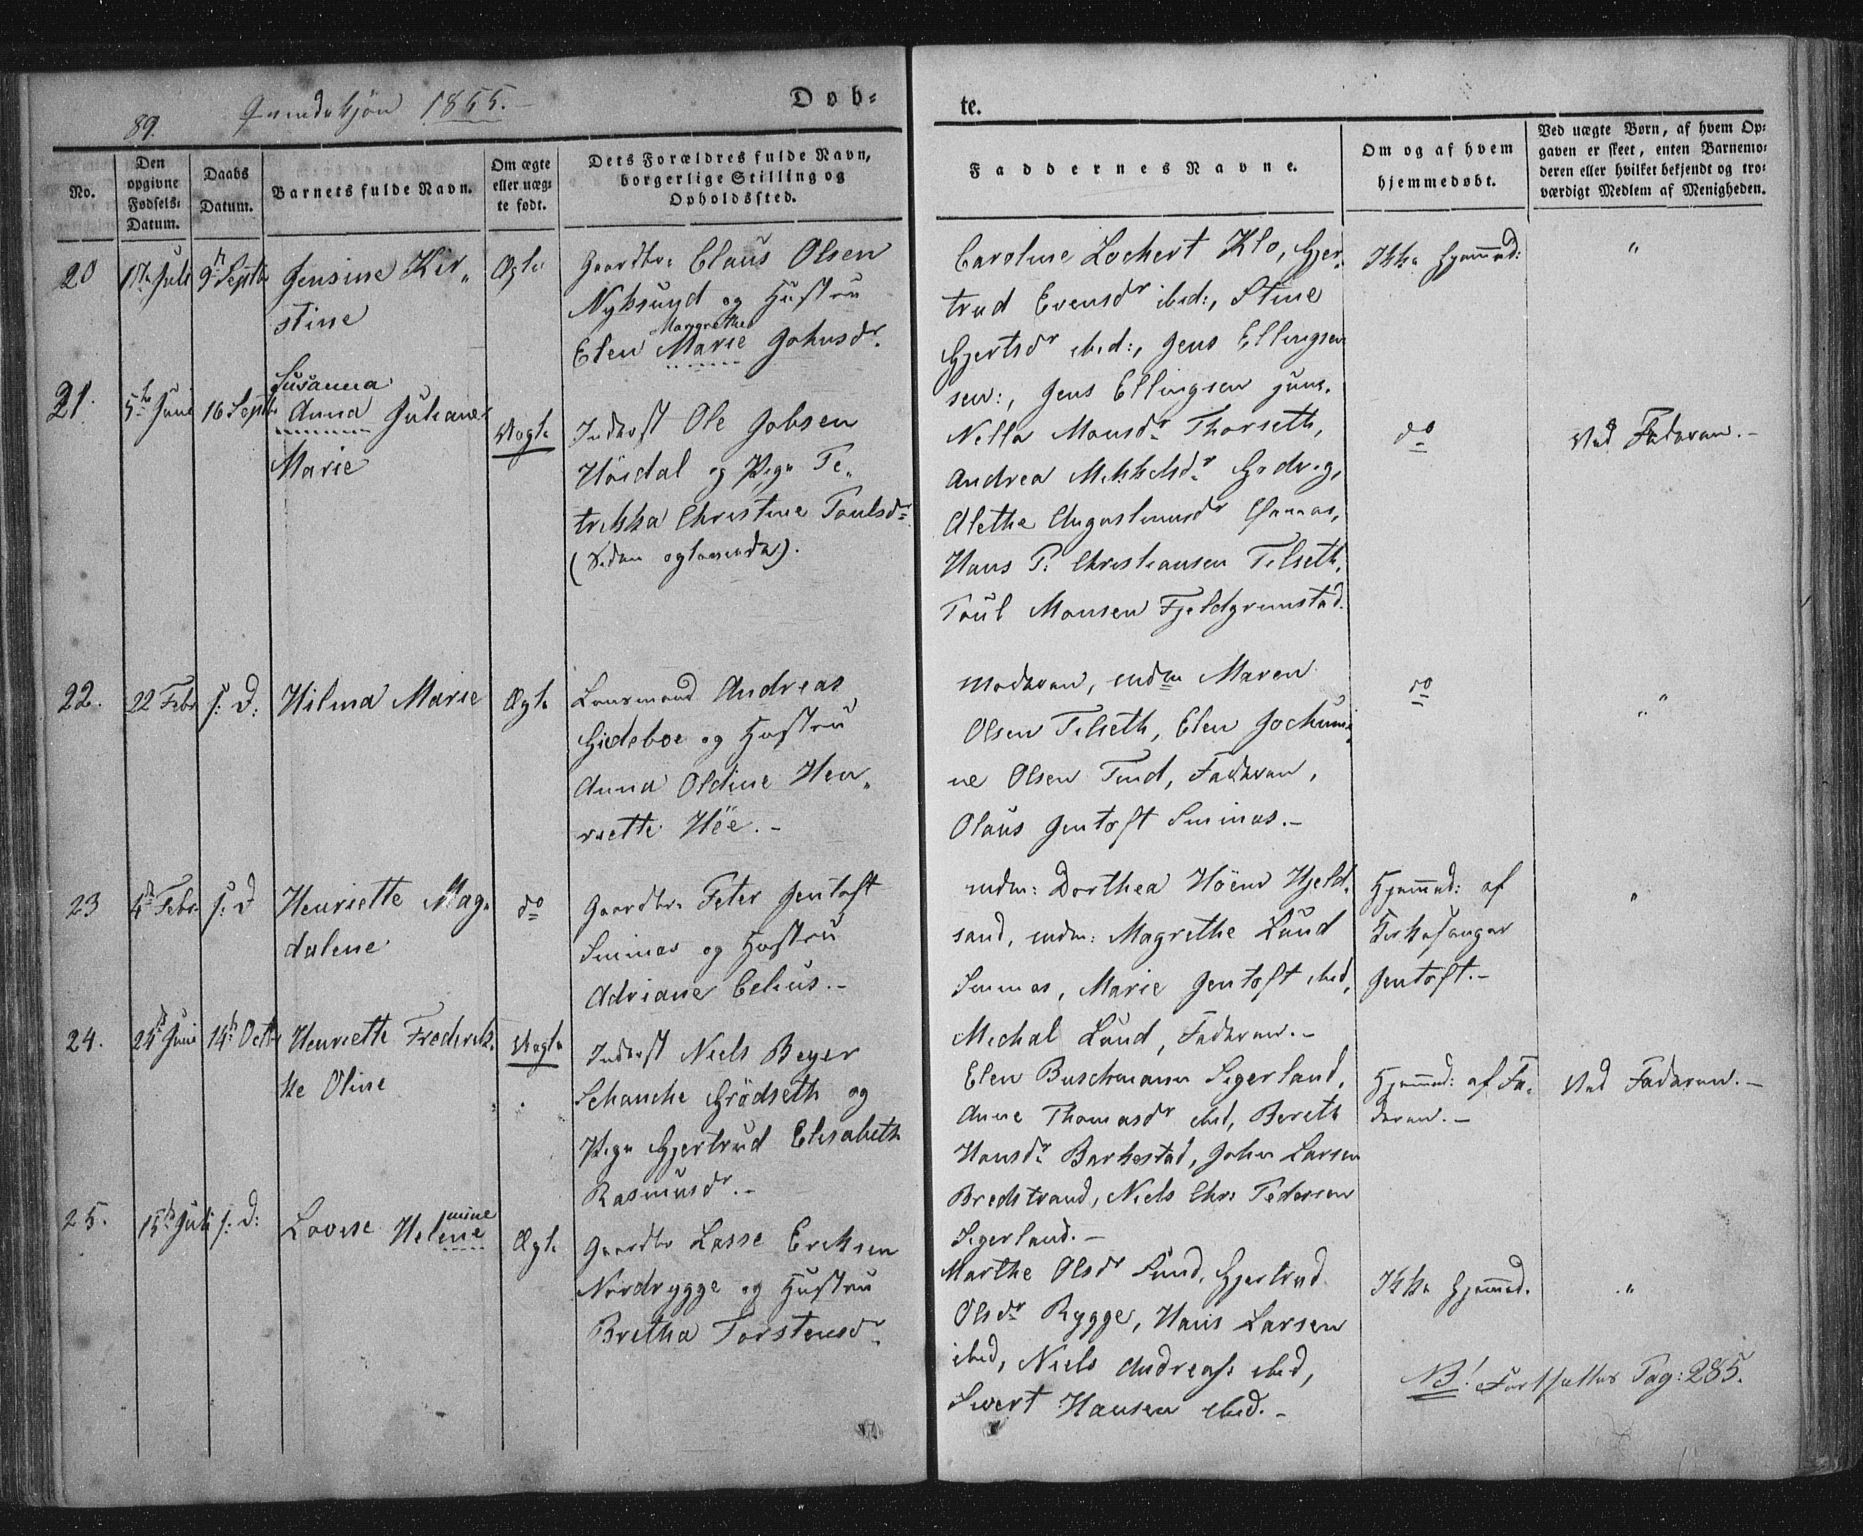 89. Qvindekjøn 1855.
Døb-
te.
No.
Den
opgivne
Fødsels-
Datum.
Daabs
Datum.
Barnets fulde Navn.
Om ægte
eller uæg-
te født.
Dets Forældres fulde Navn,
borgerlige Stilling og
Opholdssted.
Faddernes Navne.
Om og af hvem
hjemmedøbt.
Ved uægte Børn, af hvem Op-
gaven er skeet, enten Barnemo-
deren eller hvilket bekjendt og tro-
værdigt Medlem af Menigheden.
20
Juli
9 Septbr
Jensine Kir-
stine
Ægte
Gaardbr. Claus Olsen
Nyksund og Hustru
Margrethe
Elen Marie Johnsdr.
Caroline Lockert Klo, Gjer-
trud Evensdr ibid:, Stine
Gjertsdr ibid:, Jens Ellingsen
sen:, Jens Ellingsen jun.
Ikke hjemmed:
"
21.
5te Juni
16 Septbr
Susanna
Anna Juliane
Marie
Uægte
Inderst Ole Jobsen
Høidal og Pige Pe-
trikka Christine Poulsdr
(Siden ægteviede).
Nella Monsdr Thorseth,
Andrea Mikkelsdr Godvig,
Alethe Augustinusdr
Hans P. Christiansen Tilseth,
Poul Monsen Fjeldgrunstad.
do
Ved Faderen.-
22.
22 Febr
s: D:
Hilma Marie
Ægte
Lensmand Andreas
Giedeboe og Hustru
Anna Oldine Hen-
riette Höe.-
Moderen, mdm Maren
Olsen Tilseth, Elen Jochumi-
ne Olsen Tind, Faderen,
Olaus Jentoft Sminæs.-
do
"
23
4de Febr
s: D
Henriette Mag-
dalene
do
Gaardbr. Peter Jentoft
Sminæs og Hustru
Adriane Celius.-
mdm: Dorthea Höeur Hjeld-
sand, mdm: Magrethe Lund
Sminæs, Marie Jentoft ibid,
Michal Lund, Faderen.-
Hjemmed: af
Kirkesanger
Jentoft.-
"
24.
24de Juni
14de Octbr
Henriette Frederik-
ke Oline
Uægte
Inderst Niels Beyer
Schanche Grödseth og
Pige Gjertrud Elisabeth
Rasmusdr.-
Elen Buschmann Sigerland,
Anne Thomasdr ibid, Bereth
Hansdr Barkestad, John Larsen
Bredstrand, Niels Chr. Pedersen
Sigerland.-
Hjemmed: af Fa-
deren.-
Ved Faderen.-
25.
15de Juli
s: D:
mine
Lovise Helene
Ægte
Gaardbr Lasse Eriksen
Nordrygge og Hustru
Bretha Torstensdr
Marthe Olsdr Sund, Gjertrud
Olsdr Rygge, Hans Larsen
ibid, Niels Andreass ibid,
Sivert Hansen ibid.-
Ikke hjemmed.
"
NB! Fortsættes Pag: 285.